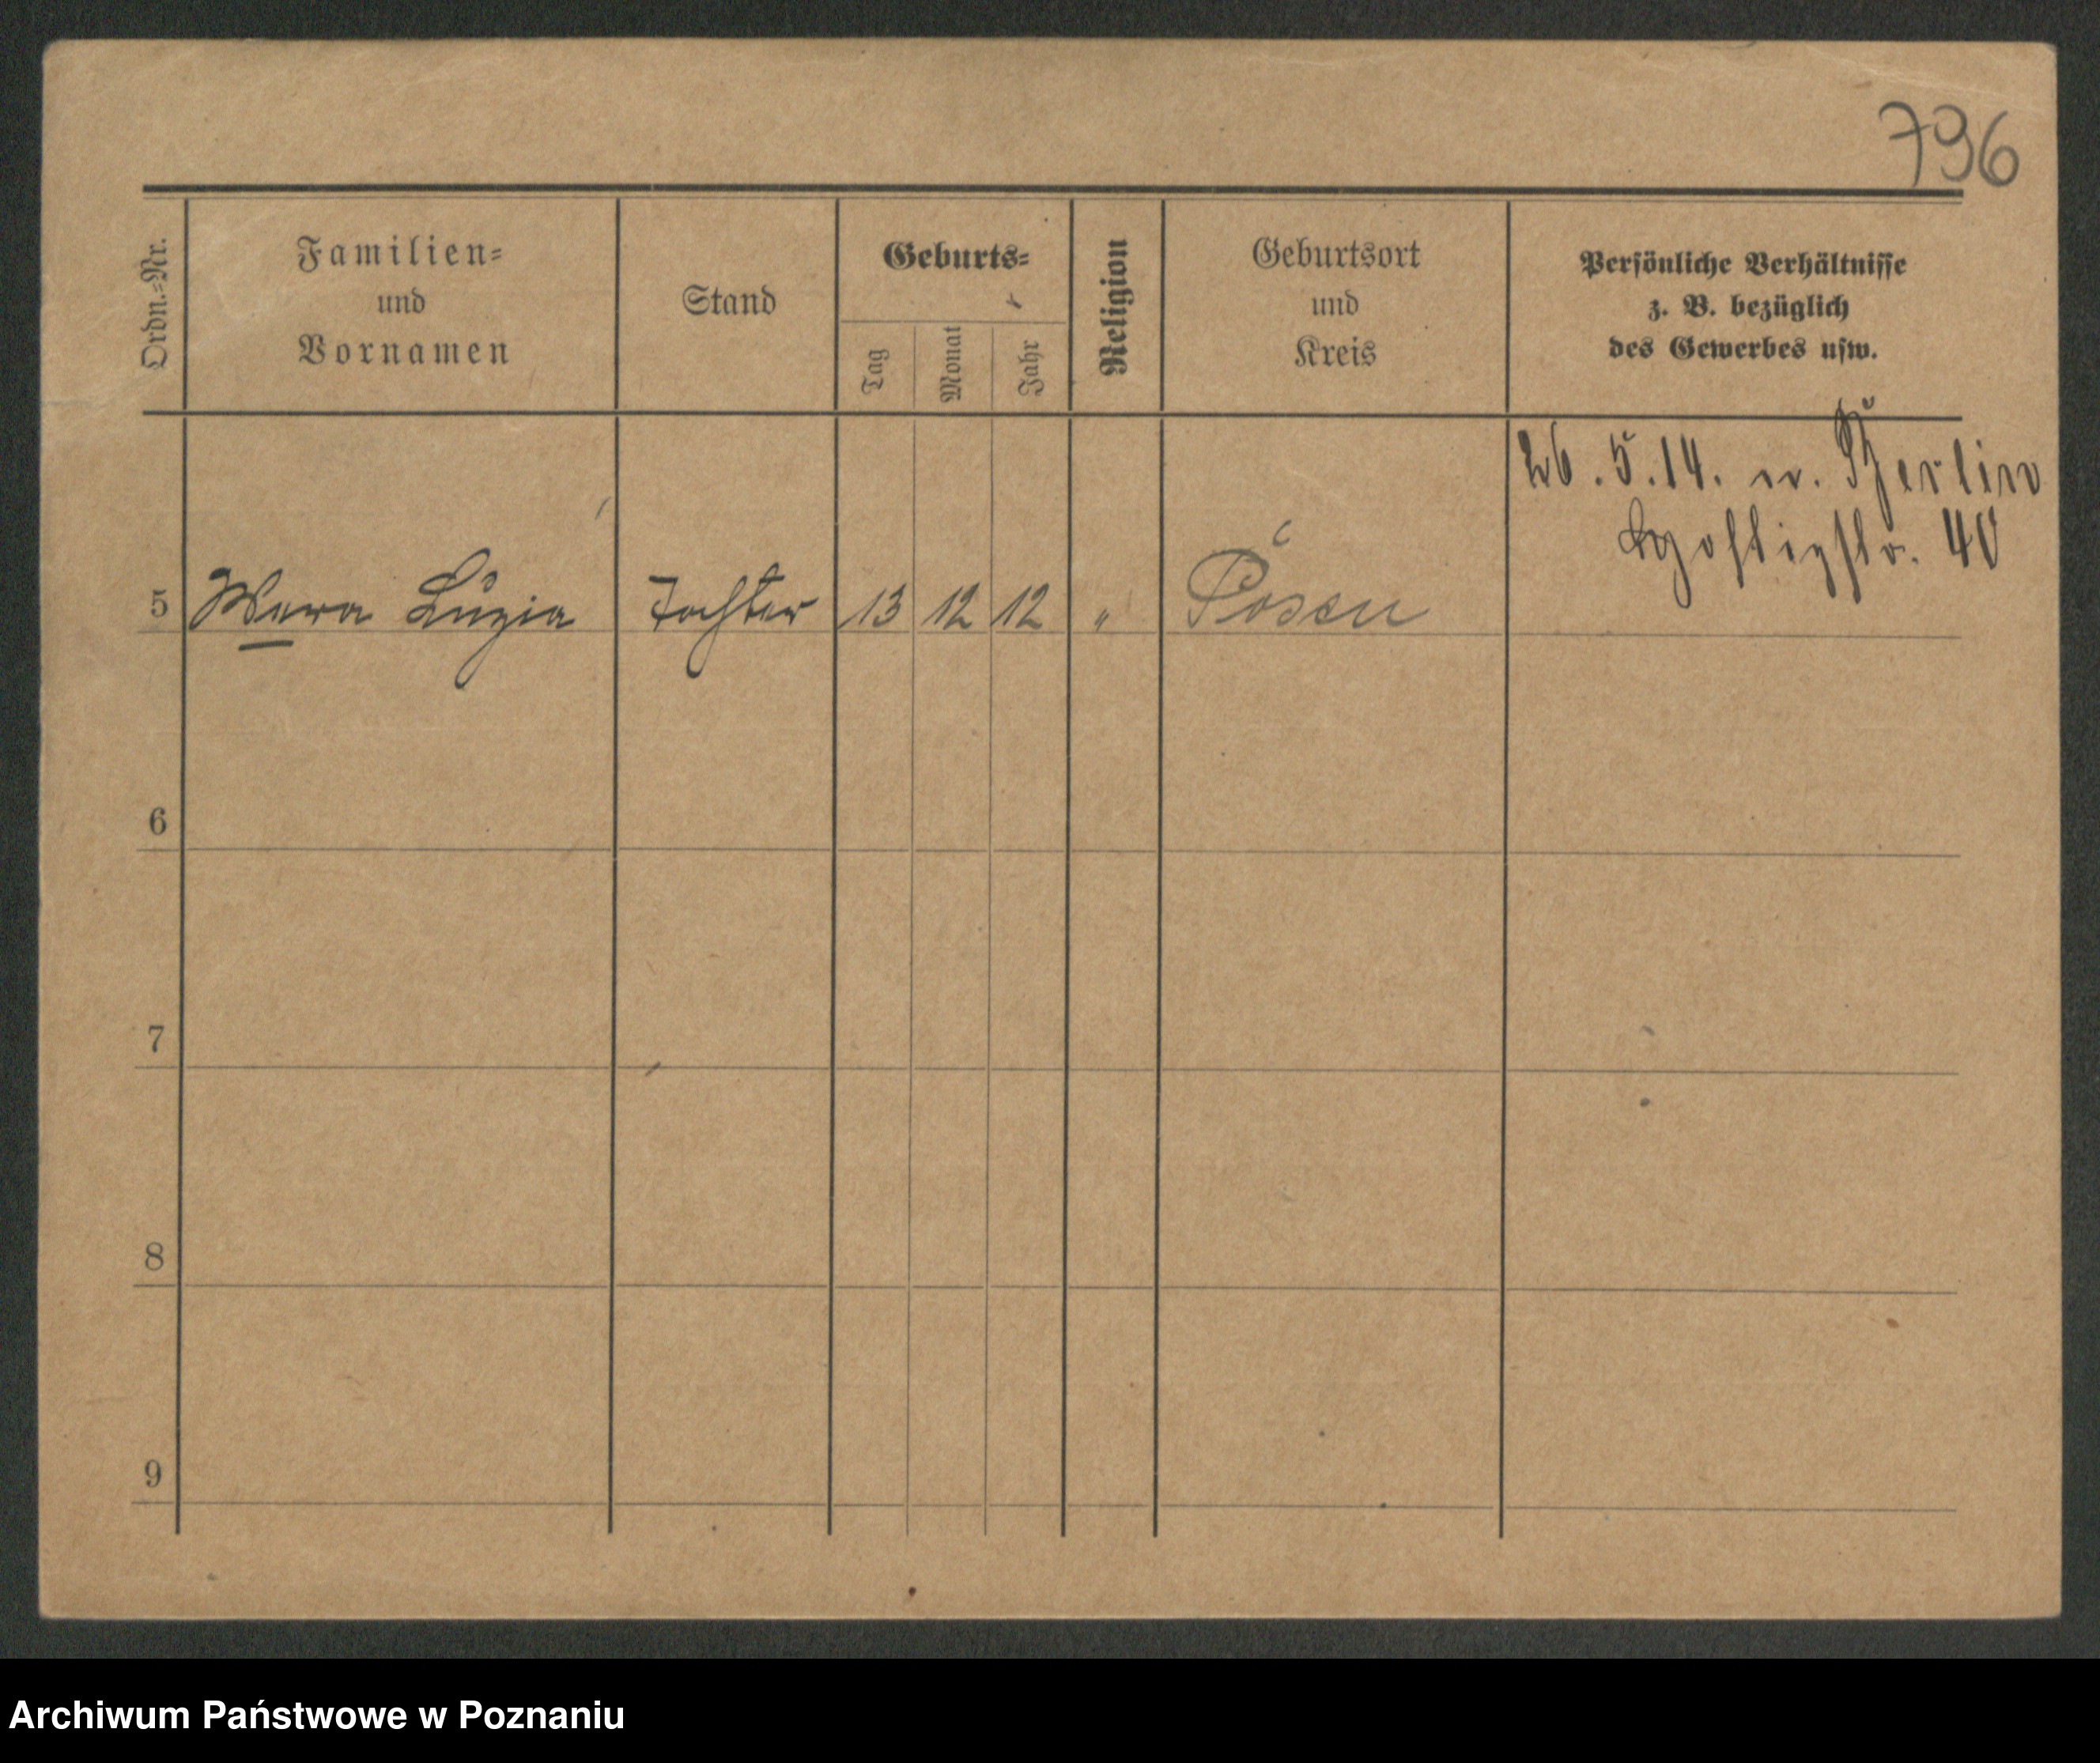 796
Ordn.=Nr.
Familien=
und
Vornamen
Stand
Geburts=
Tag
Monat
Jahr
Religion
Geburtsort
und
Kreis
Persönliche Verhältnisse
z. B. bezüglich
des Gewerbes usw.
26.5.14. n. Berlin
40
5 Wera Luzia Tochter 13 12 12 " Posen
6
7
8
9
Archiwum Państwowe w Poznaniu